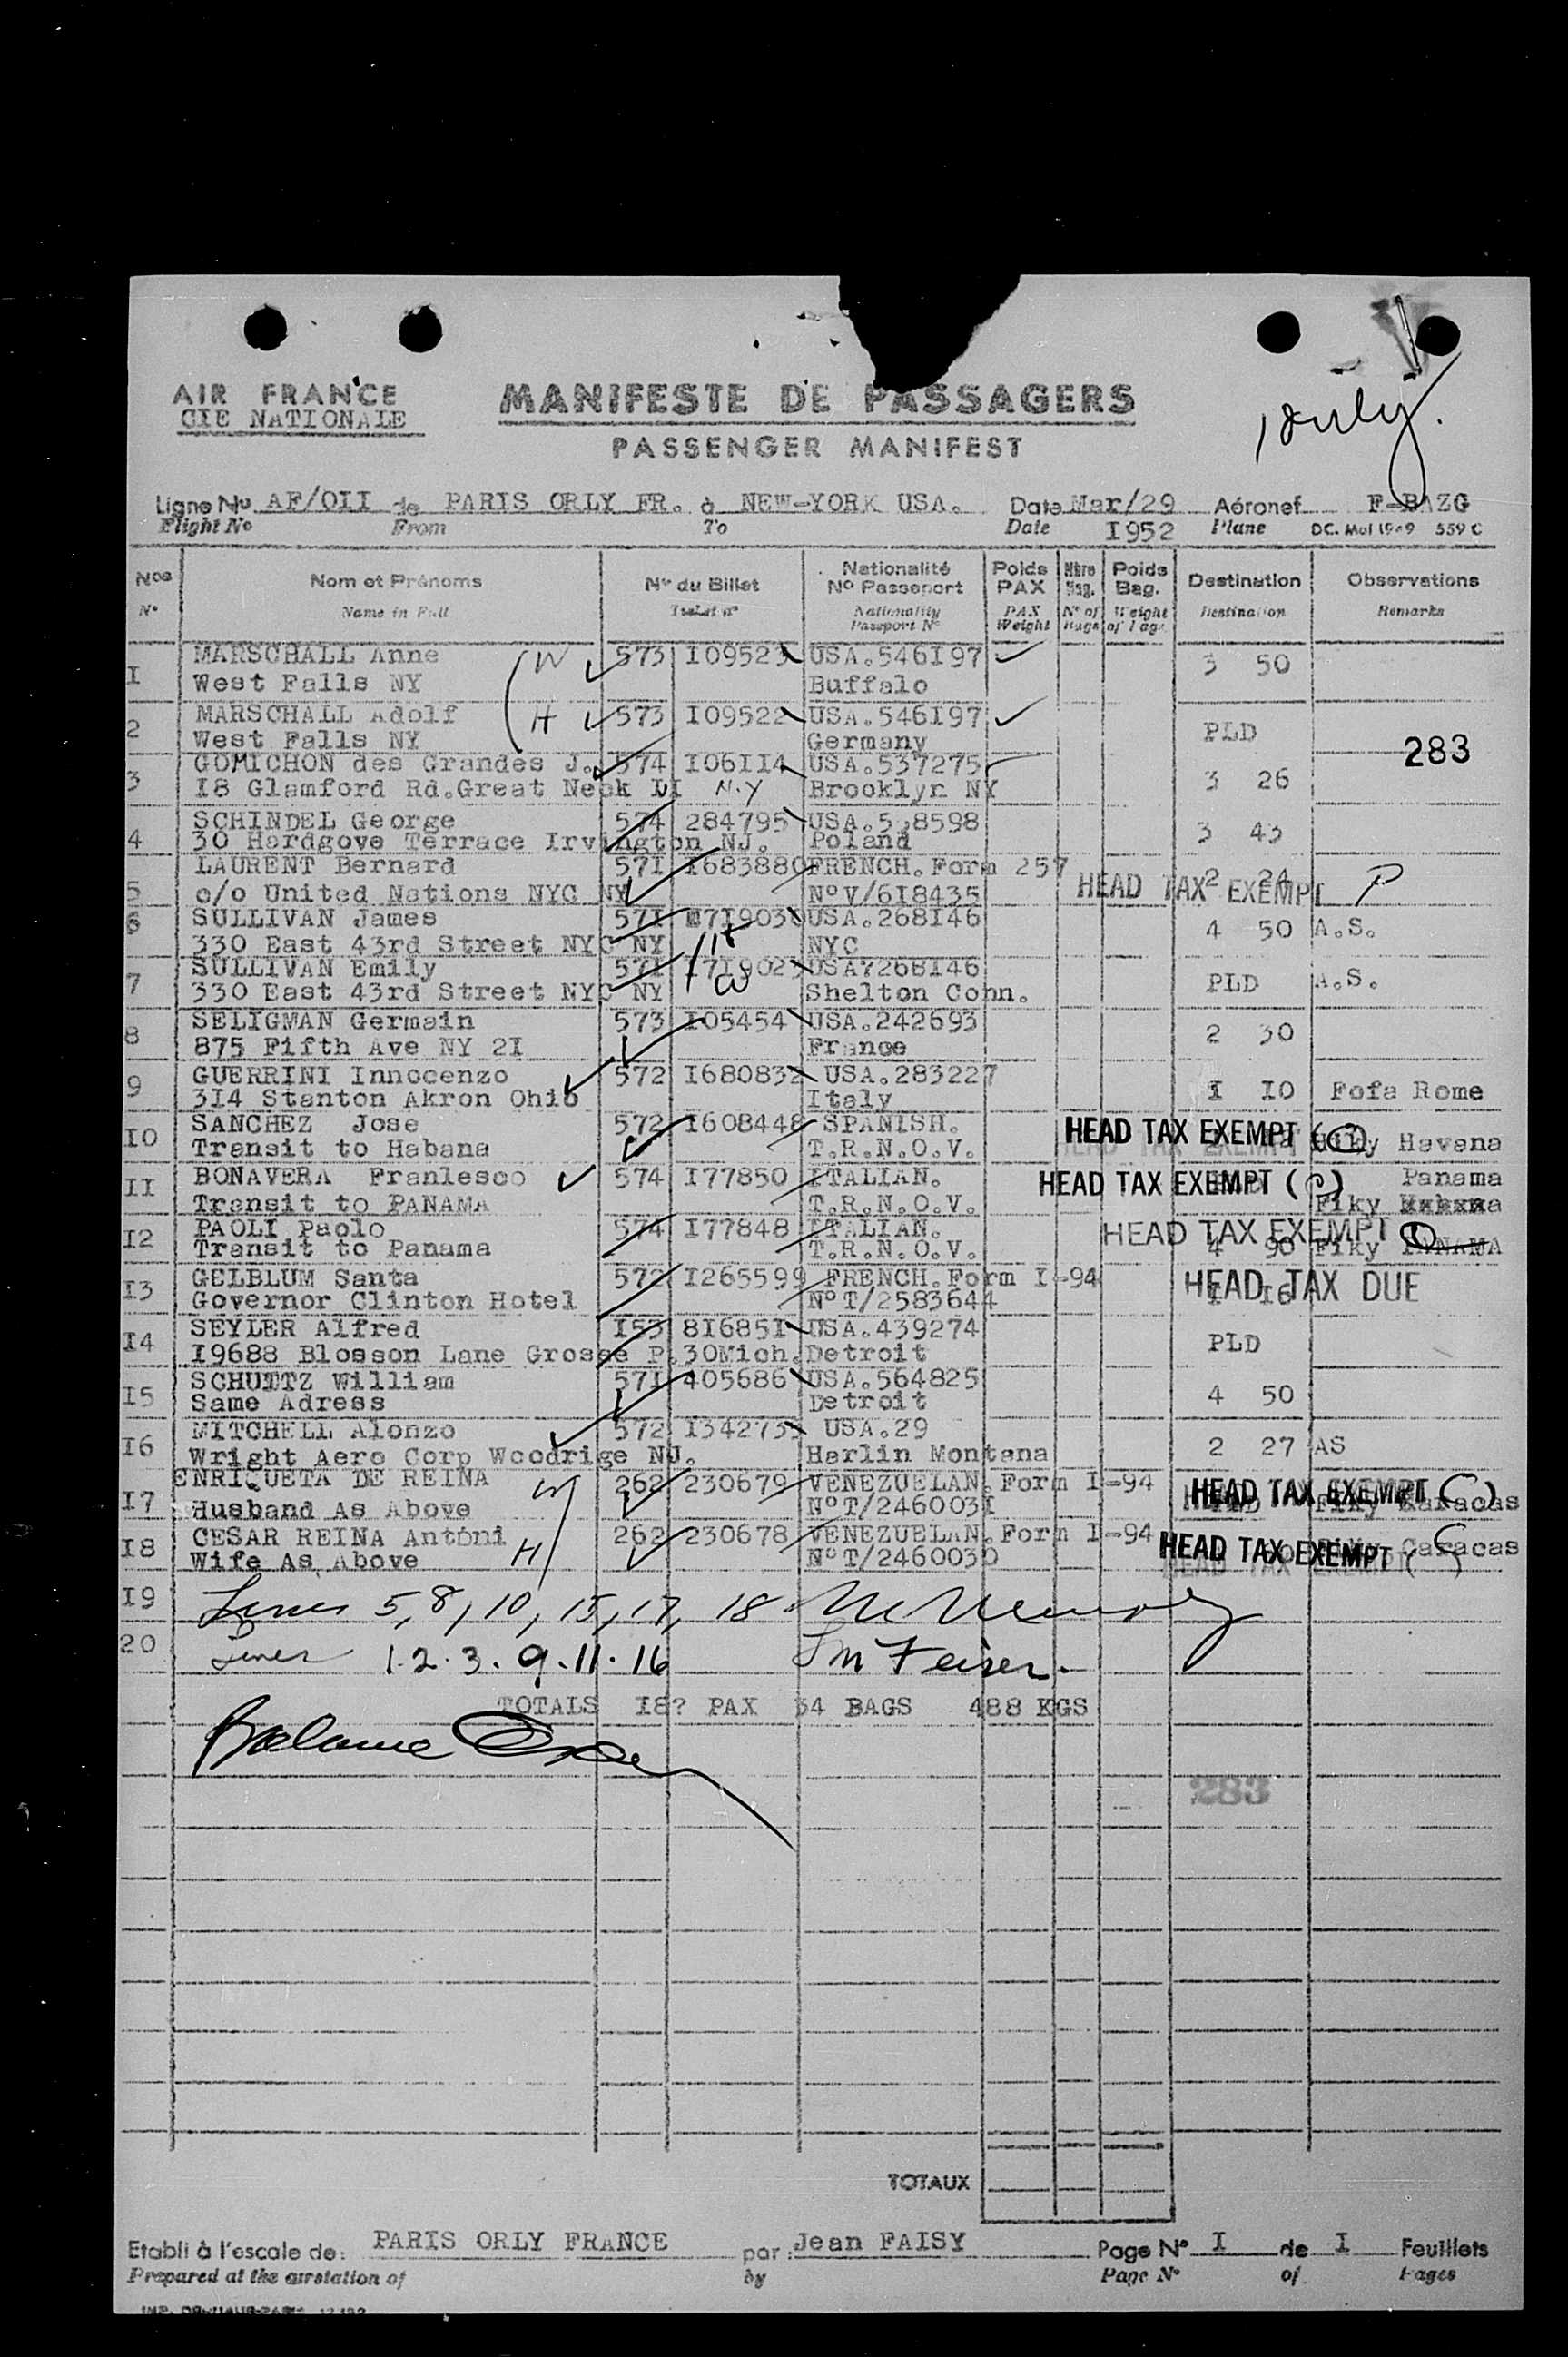 AIR FRANCE
CIE NATIONALE
MANIFESTE DE PASSAGERS
PASSENGER MANIFEST
Ligne No. AF/OII de PARIS ORLY FR. à NEW-YORK USA. Date Mar/29 Aéronef F-BAZG
Flight No From To Date I952 Plane DC. Mol 1949 559 C
Nos Nom et Prénoms No du Billet Nationalité No Passeport Poids PAX Nbre Bag. Poids Bag. Destination Observations
No Name in Full Ticket no Nationality Passport No PAX Weight No of Bags Weight of Bags Destination Remarks
I MARSCHALL Anne W 573 I09523 USA.546I97 3 50
West Falls NY Buffalo
2 MARSCHALL Adolf H 573 I09522 USA.546I97 PLD
West Falls NY Germany
283
3 GOMICHON des Grandes J. 574 I06II4 USA.537275 3 26
I8 Glamford Rd.Great Neck LI N.Y Brooklyn NY
4 SCHINDEL George 574 284795 USA. 3 43
30 Hardgove Terrace Irvington NJ. Poland
5 LAURENT Bernard 57I I683880 FRENCH.Form 257 2 24
c/o United Nations NYC NY NoV/6I8435 HEAD TAX EXEMPT P
6 SULLIVAN James 57I USA.268I46 4 50 A.S.
330 East 43rd Street NYC NY H NYC
7 SULLIVAN Emily 57I I7I9023 USA7268I46 PLD A.S.
330 East 43rd Street NYC NY W Shelton Conn.
8 SELIGMAN Germain 573 I05454 USA.242693 2 30
875 Fifth Ave NY 2I France
9 GUERRINI Innocenzo 572 I680832 USA.283227 I I0 Fofa Rome
3I4 Stanton Akron Ohio Italy
I0 SANCHEZ Jose 572 I608448 SPANISH. HEAD TAX EXEMPT (C)
Transit to Habana T.R.N.O.V. Fiky Havena
II BONAVERA Franlesco 574 I77850 ITALIAN. HEAD TAX EXEMPT (C) Panama
Transit to PANAMA T.R.N.O.V. Fiky
I2 PAOLI Paolo 574 I77848 ITALIAN. HEAD TAX EXEMPT
Transit to Panama T.R.N.O.V. 4 90 Fiky PANAMA
I3 GELBLUM Santa 572 I265599 FRENCH.Form I-94 HEAD TAX DUE
Governor Clinton Hotel NoT/2583644 I I6
I4 SEYLER Alfred I53 8I685I USA.439274 PLD
I9688 Blosson Lane Grosse P.30Mich. Detroit
I5 SCHUTTZ William 57I 405686 USA.564825 4 50
Same Adress Detroit
I6 MITCHELL Alonzo 572 USA.29 2 27 AS
Wright Aero Corp Woodrige NJ. Harlin Montana
I7 ENRIQUETA DE REINA W 262 230679 VENEZUELAN.Form I-94 HEAD TAX EXEMPT (C)
Husband As Above NoT/246003I Fiky Karacas
I8 CESAR REINA Antoni H 262 230678 VENEZUELAN.Form I-94 HEAD TAX EXEMPT (C)
Wife As Above NoT/2460030 Caracas
I9 Lines 5, 8, 10, 15, 17, 18
20 Lines 1.2.3.9.11.16
TOTALS I8? PAX 34 BAGS 488 KGS
Balance
283
TOTAUX
Etabli à l'escale de: PARIS ORLY FRANCE par: Jean FAISY Page No I de I Feuillets
Prepared at the airstation of by Page No of Pages